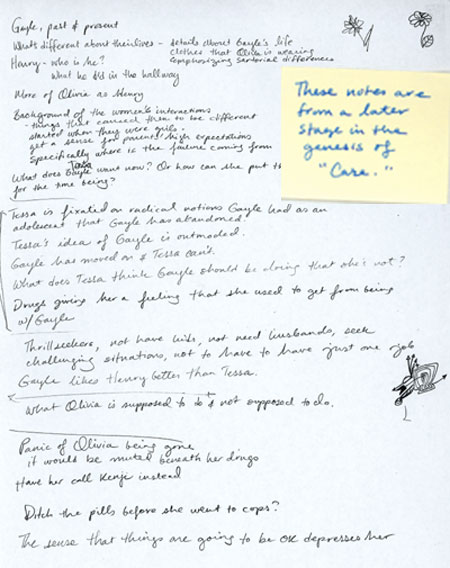 Gayle, past & present
What's different about their lives - details about Gayle's life
clothes that Olivia is wearing
emphasizing sartorial differences
Henry - who is he?
What he did in the hallway
More of Olivia as Henry
Background of the women's interactions
- things that caused them to be different
started when they were girls.
get a sense for parents' high expectations
Specifically where is the failure coming from
Tessa
What does Gayle want now? Or how can she put th
for the time being?
Tessa is fixated on radical notions Gayle had as an
adolescent that Gayle has abandoned.
Tessa's idea of Gayle is outmoded.
Gayle has moved on & Tessa can't.
What does Tessa think Gayle should be doing that she's not?
Drugs giving her a feeling that she used to get from being
w/ Gayle
Thrillseekers, not have kids, not need husbands, seek
challenging situations, not to have to have just one job
Gayle likes Henry better than Tessa.
What Olivia is supposed to do & not supposed to do.
Panic of Olivia being gone
it would be muted beneath her drugs
Have her call Kenji instead
Ditch the pills before she went to cops?
The sense that things are going to be OK depresses her
These notes are
from a later
stage in the
genesis of
"Care."